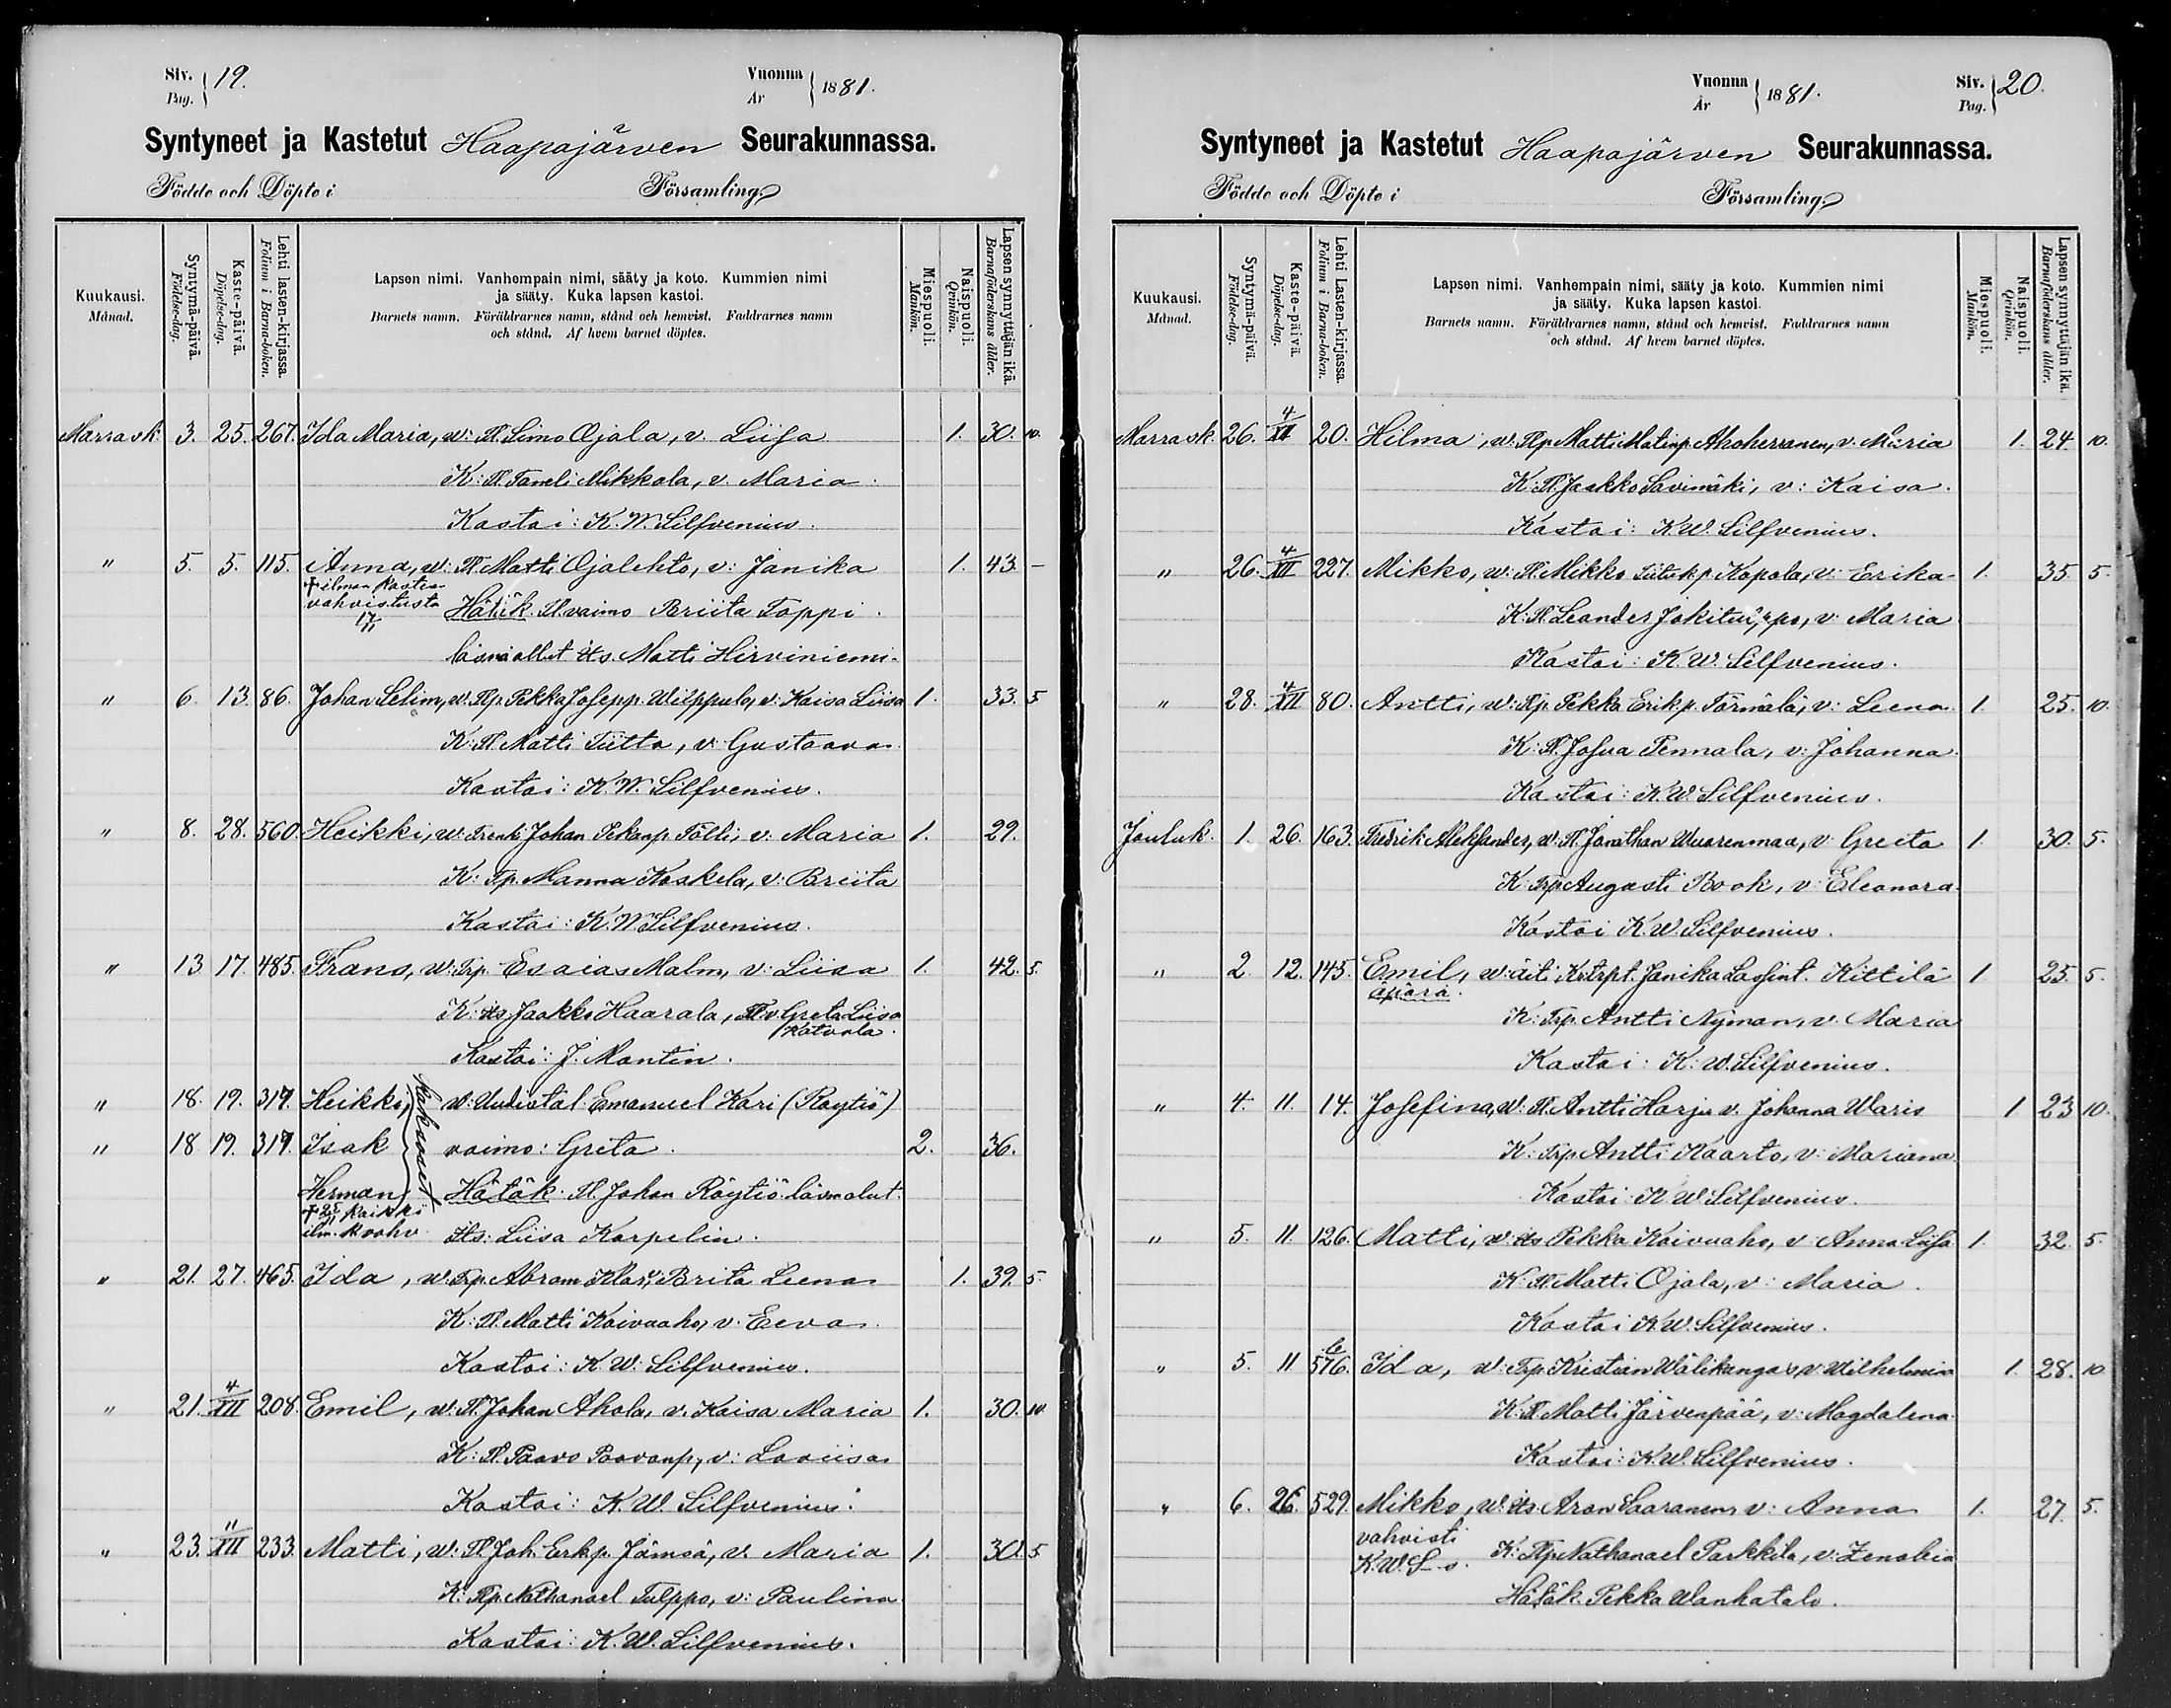 Siv. 19.
Pag.
Vuonna 1881.
År
Syntyneet ja Kastetut Haapajärven Seurakunnassa.
Födde och Döpte i Församling
Kuukausi.
Månad.
Syntymä-päivä.
Födelse-dag.
Kaste-päivä.
Döpelse-dag.
Lehti lasten-kirjassa.
Folium i Barna-boken.
Lapsen nimi. Vanhempain nimi, sääty ja koto. Kummien nimi
ja sääty. Kuka lapsen kastoi.
Barnets namn. Föräldrarnes namn, stånd och hemvist. Faddrarnes namn
och stånd. Af hvem barnet döptes.
Miespuoli.
Mankön.
Naispuoli.
Qvinkön.
Lapsen synnyttäjän ikä.
Barnaföderskans ålder.
Marrask. 3. 25. 267. Ida Maria, w: Tl. Simo Ojala, v. Liisa 1. 30. 10.
K: Tl. Taneli Mikkola, v. Maria.
Kastoi: K. W. Silfvenius.
" 5. 5. 115. Anna, w: Tl. Matti Ojalehto, v: Janika 1. 43 -
† ilman kasteen
vahvistusta Hätäk. Tl. vaimo Briita Toppi.
17/11
läsnäollut its. Matti Hirviniemi.
" 6. 13. 86. Johan Selim, w. Tlp. Pekka Josepp. Wilppula, v: Kaisa Liisa 1. 33. 5
K: Tl. Matti Tiitto, v: Gustaava.
Kastoi: K. W. Silfvenius.
" 8. 28. 560. Heikki, w: Trenki Johan Pekanp. Tölli, v: Maria 1. 29.
K: Tp. Manna Koskela, v: Briita
Kastoi: K. W Silfvenius.
" 13 17. 485. Frans, w: Trp. Esaias Malm, v: Liisa 1. 42. 5.
K: its Jaakko Haarala, Tl. v Greta Liisa
Katvala.
Kastoi: J. Montin.
" 18. 19. 317. Heikki, w: Uudistal. Emanuel Kari (Raytiö)
kaksoiset
" 18 19. 317. Isak vaimo: Greta. 2. 36.
Herman Hätäk. Tl. Johan Röytiö läsnä olut.
† kaikki
ilm. k. vahv. Its. Liisa Karpelin.
" 21. 27. 465. Ida, w. Trp. Abram Klas, Brita Leena 1. 39. 5.
K: Tl. Matti Koivuaho, v. Eeva.
Kastoi: K. W. Silfvenius.
" 21. 4/XII 208. Emil, w. Tl. Johan Ahola, v. Kaisa Maria 1. 30. 10
K: Tl. Paavo Paavonp, v: Loviisa
Kastoi: K. W. Silfvenius.
" 23. 11/XII 233. Matti, w: Tl. Joh. Erkp. Jämsä, v. Maria 1. 30. 5
K: Tlp. Nathanael Tulppo, v: Paulina
Kastoi: K. W. Silfvenius.
Vuonna 1881.
År
Siv. 20.
Pag.
Syntyneet ja Kastetut Haapajärven Seurakunnassa.
Födde och Döpte i Församling
Kuukausi.
Månad.
Syntymä-päivä.
Födelse-dag.
Kaste-päivä.
Döpelse-dag.
Lehti Lasten-kirjassa.
Folium i Barna-boken.
Lapsen nimi. Vanhempain nimi, sääty ja koto. Kummien nimi
ja sääty. Kuka lapsen kastoi.
Barnets namn. Föräldrarnes namn, stånd och hemvist. Faddrarnes namn
och stånd. Af hvem barnet döptes.
Miespuoli.
Mankön.
Naispuoli.
Qvinkön.
Lapsen synnyttäjän ikä.
Barnaföderskans ålder.
Marrask. 26. 4/XII 20. Hilma, w. Tlp. Matti Matinp. Ahoherranen, v. Maria 1. 24. 10.
K: Tl. Jaakko Savimäki, v: Kaisa.
Kastoi: K. W. Silfvenius.
" 26. 4/XII 227. Mikko, w: Tl. Mikko Kopola, v: Erika 1. 35. 5.
K: Tl. Leander, v: Maria
Kastoi: K. W. Silfvenius.
" 28. 4/XII 80. Antti, w: Tlp. Pekka Erikp. Törmälä, v: Leena 1. 25. 10.
K: Tl. Josua Pennala, v: Johanna.
Kastoi: K. W. Silfvenius.
Jouluk. 1. 26. 163. Fredrik Aleksander, w. Tl. Jonathan Wuorenmaa, v: Greeta 1 30. 5.
K: Trp. Augusti Book, v: Eleonora.
Kastoi K. W. Silfvenius.
" 2. 12. 145. Emil, w: äiti Kstrpt. Janika Lassint. Kittilä 1 25. 5.
äpärä.
K: Trp. Antti Nyman, v. Maria
Kastoi: K: W. Silfvenius.
" 4. 11. 14. Josefina, w: Tl. Antti Harju v. Johanna Waris 1 23 10.
K: Trp. Antti Kaarto, v: Mariana.
Kastoi: K. W Silfvenius.
" 5. 11. 126. Matti, w: its Pekka Koivuaho, v: Anna Liisa 1. 32. 5.
K: Tl. Matti Ojala, v: Maria.
Kastoi K. W. Silfvenius.
" 5. 11 576. Ida, w: Trp. Kristian Wälikangas, v: Wilhelmina 1. 28. 10
K: Tl. Matti Järvenpää, v: Magdalena
Kastoi: K. W. Silfvenius.
" 6. 26. 529. Mikko, w: its. Aron Saaranen, v: Anna 1. 27. 5.
vahvisti
K. W. S-s. K: Tlp. Nathanael Parkkila, v: Zenobia
Hätäk. Pekka Wanhatalo.